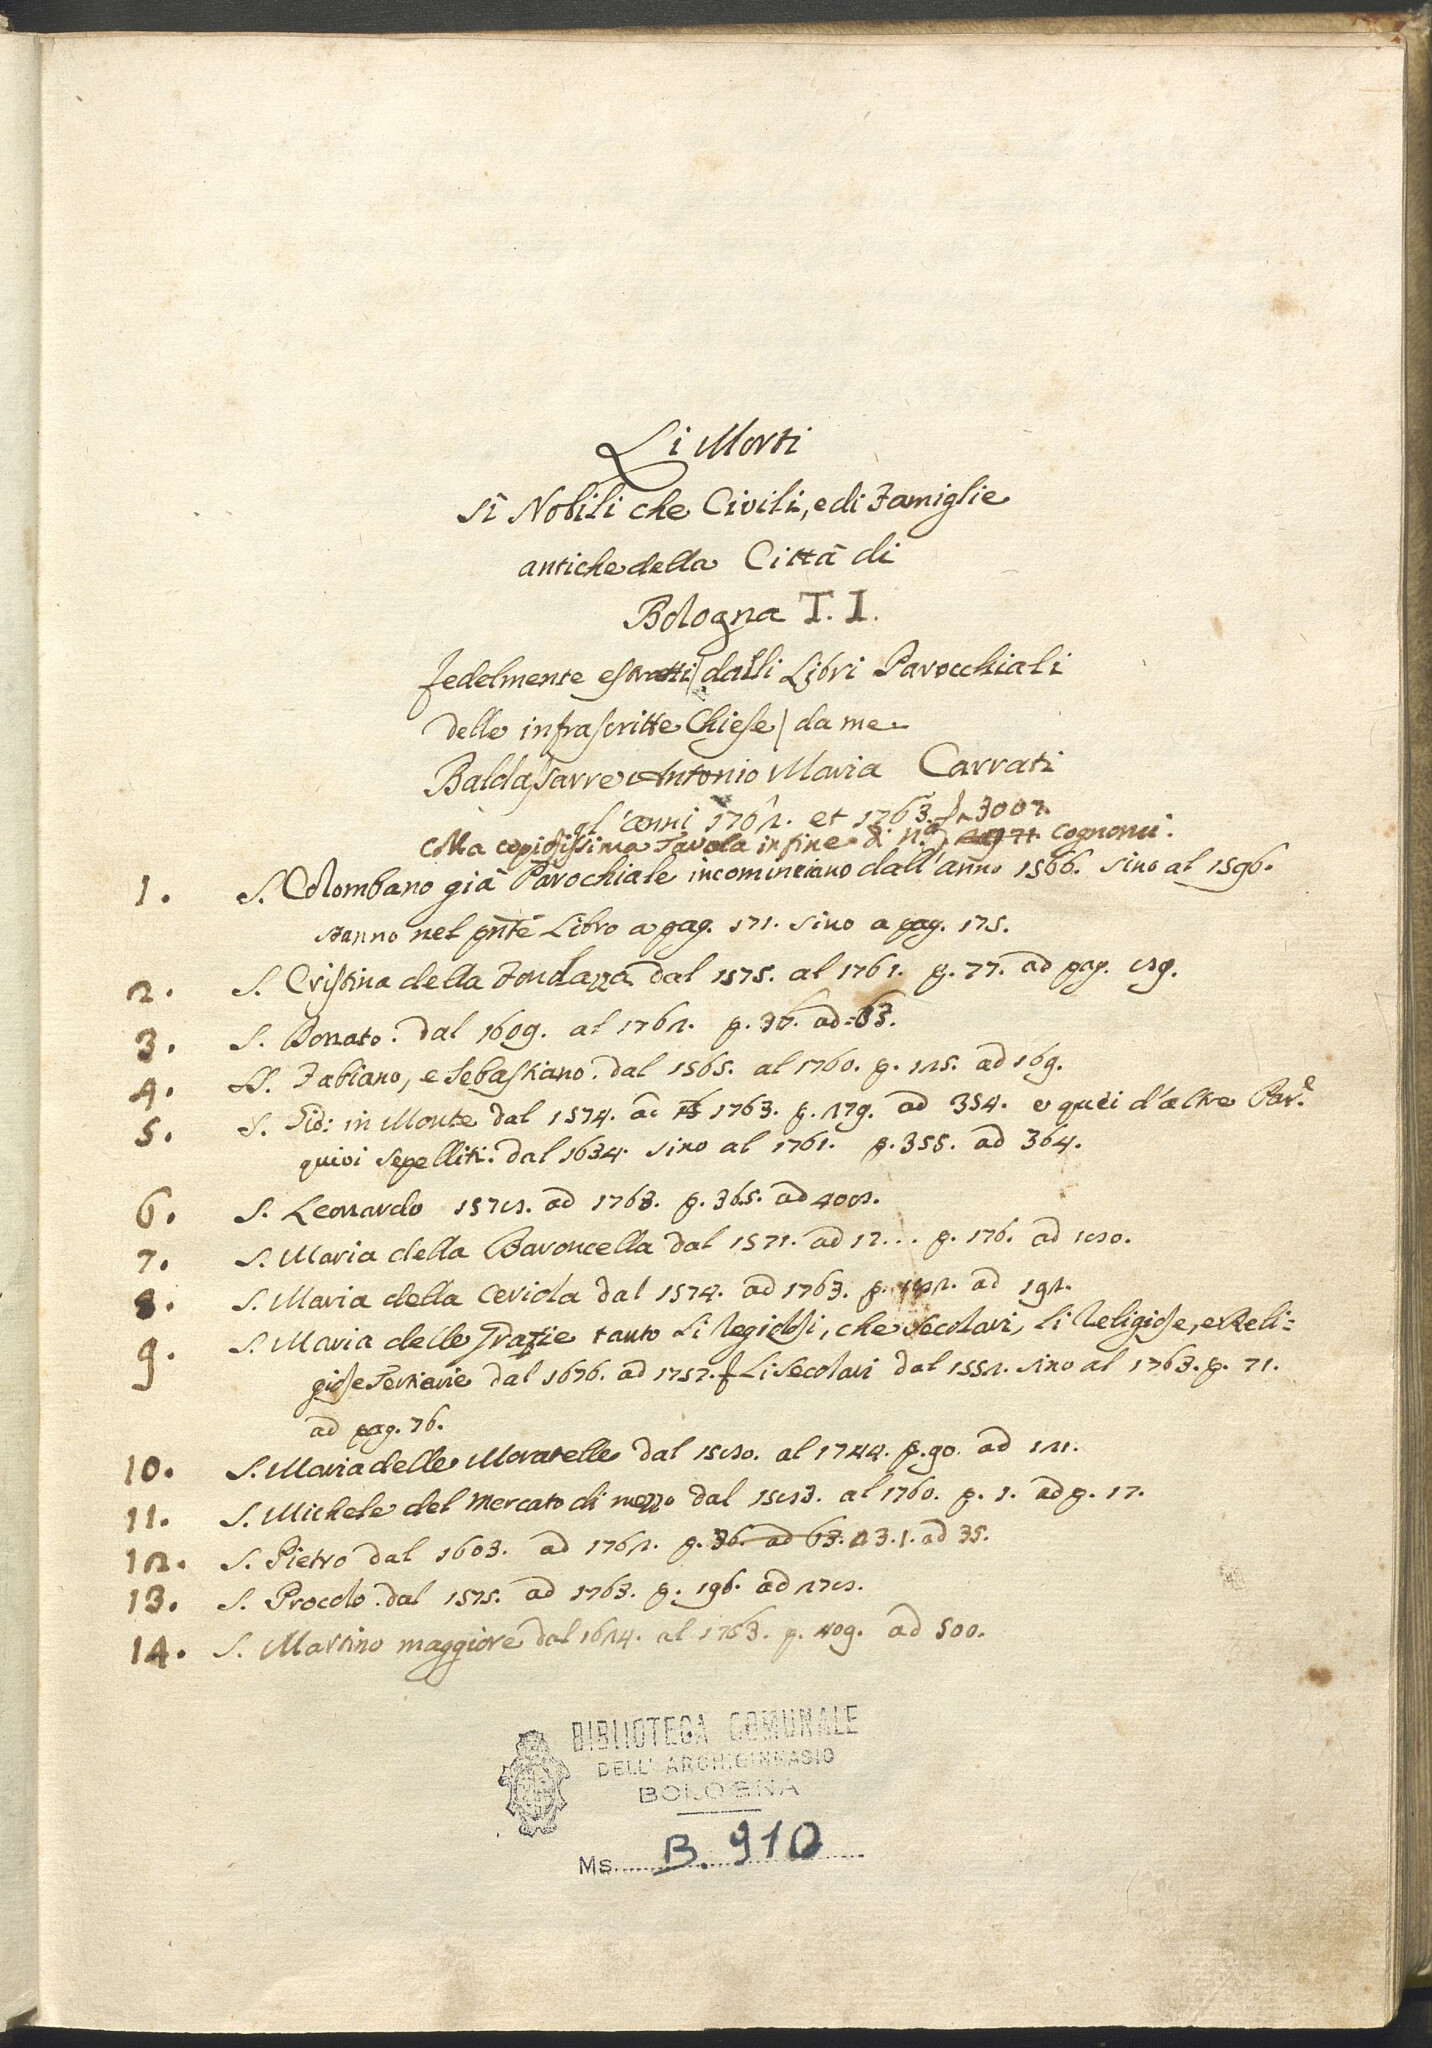 Li Morti
sì Nobili che Civili, e di Famiglie
antiche della Città di
Bologna T. I.
fedelmente estratti dalli Libri Parocchiali
delle infrascritte Chiese / da me
Baldassarre Antonio Maria Carrati
gl'anni 1762. et 1763. 3007.
copiosissima Tavola in fine di n.º Cognomi.
1. S. Colombano già Parochiale incominciano dall'anno 1566. sino al 1596.
stanno nel pñte Libro a pag. 171. sino a pag. 175.
2. S. Cristina della Fondazza dal 1575. al 1761. p. 77. ad pag. 89.
3. S. Donato. dal 1609. al 1762. p. 36. ad 63.
4. SS. Fabiano, e Sebastiano. dal 1565. al 1760. p. 125. ad 169.
5. S. Gio: in Monte dal 1574. ad 1763. p. 279. ad 354. e quei d'altre Par.e
quivi sepelliti. dal 1634. sino al 1761. p. 355. ad 364.
6. S. Leonardo 1578. ad 1763. p. 365. ad 408.
7. S. Maria della Baroncella dal 1571. ad 17... p. 176. ad 180.
8. S. Maria della Ceriola dal 1574. ad 1763. p. ad 192.
9. S. Maria delle Grazie tanto Li Regiolsi, che Secolari, Li Religiose, e Reli=
giose Terziarie dal 1676. ad 1757. Li Secolari dal 1552. sino al 1763. p. 71.
ad pag. 76.
10. S. Maria delle Moratelle dal 1580. al 1744. p. 90. ad 121.
11. S. Michele del Mercato di mezzo dal 1583. al 1760. p. 1. ad p. 17.
12. S. Pietro dal 1603. ad 1762. p. 36. ad 63. 1. ad 35.
13. S. Procolo. dal 1575. ad 1763. p. 196. ad 278.
14. S. Martino maggiore dal 1624. al 1763. p. 409. ad 500.
BIBLIOTECA COMUNALE
DELL'ARCHIGINNASIO
BOLOGNA
Ms. B. 910